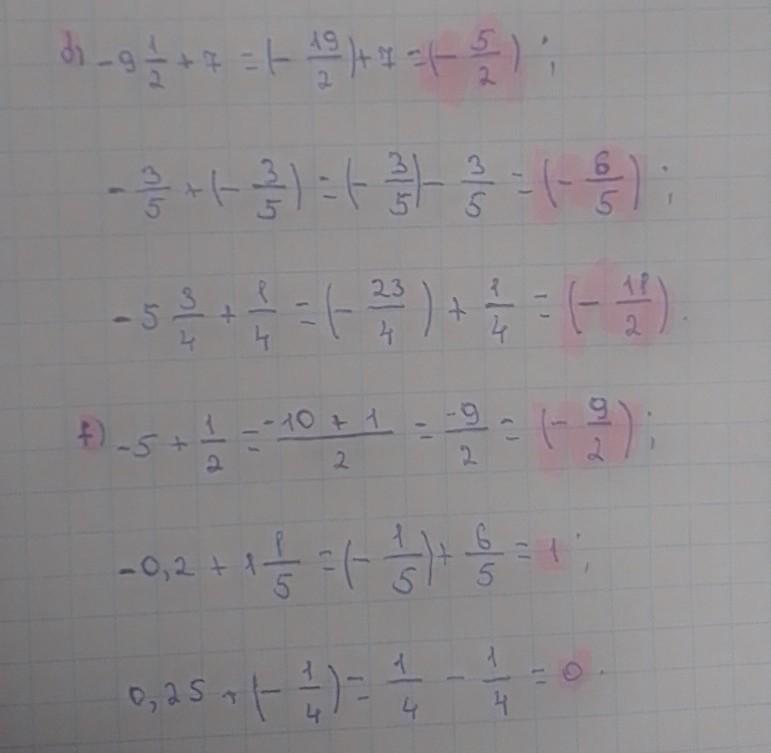 d) -9 1/2 + 7 = (- 19/2) + 7 = (- 5/2) ;
- 3/5 + (- 3/5) = (- 3/5) - 3/5 = (- 6/5) ;
-5 3/4 + 1/4 = (- 23/4) + 1/4 = (- 11/2) .
f) -5 + 1/2 = -10 + 1/2 = -9/2 = (- 9/2) ;
-0,2 + 1 1/5 = (- 1/5) + 6/5 = 1 ;
0,25 + (- 1/4) = 1/4 - 1/4 = 0 .